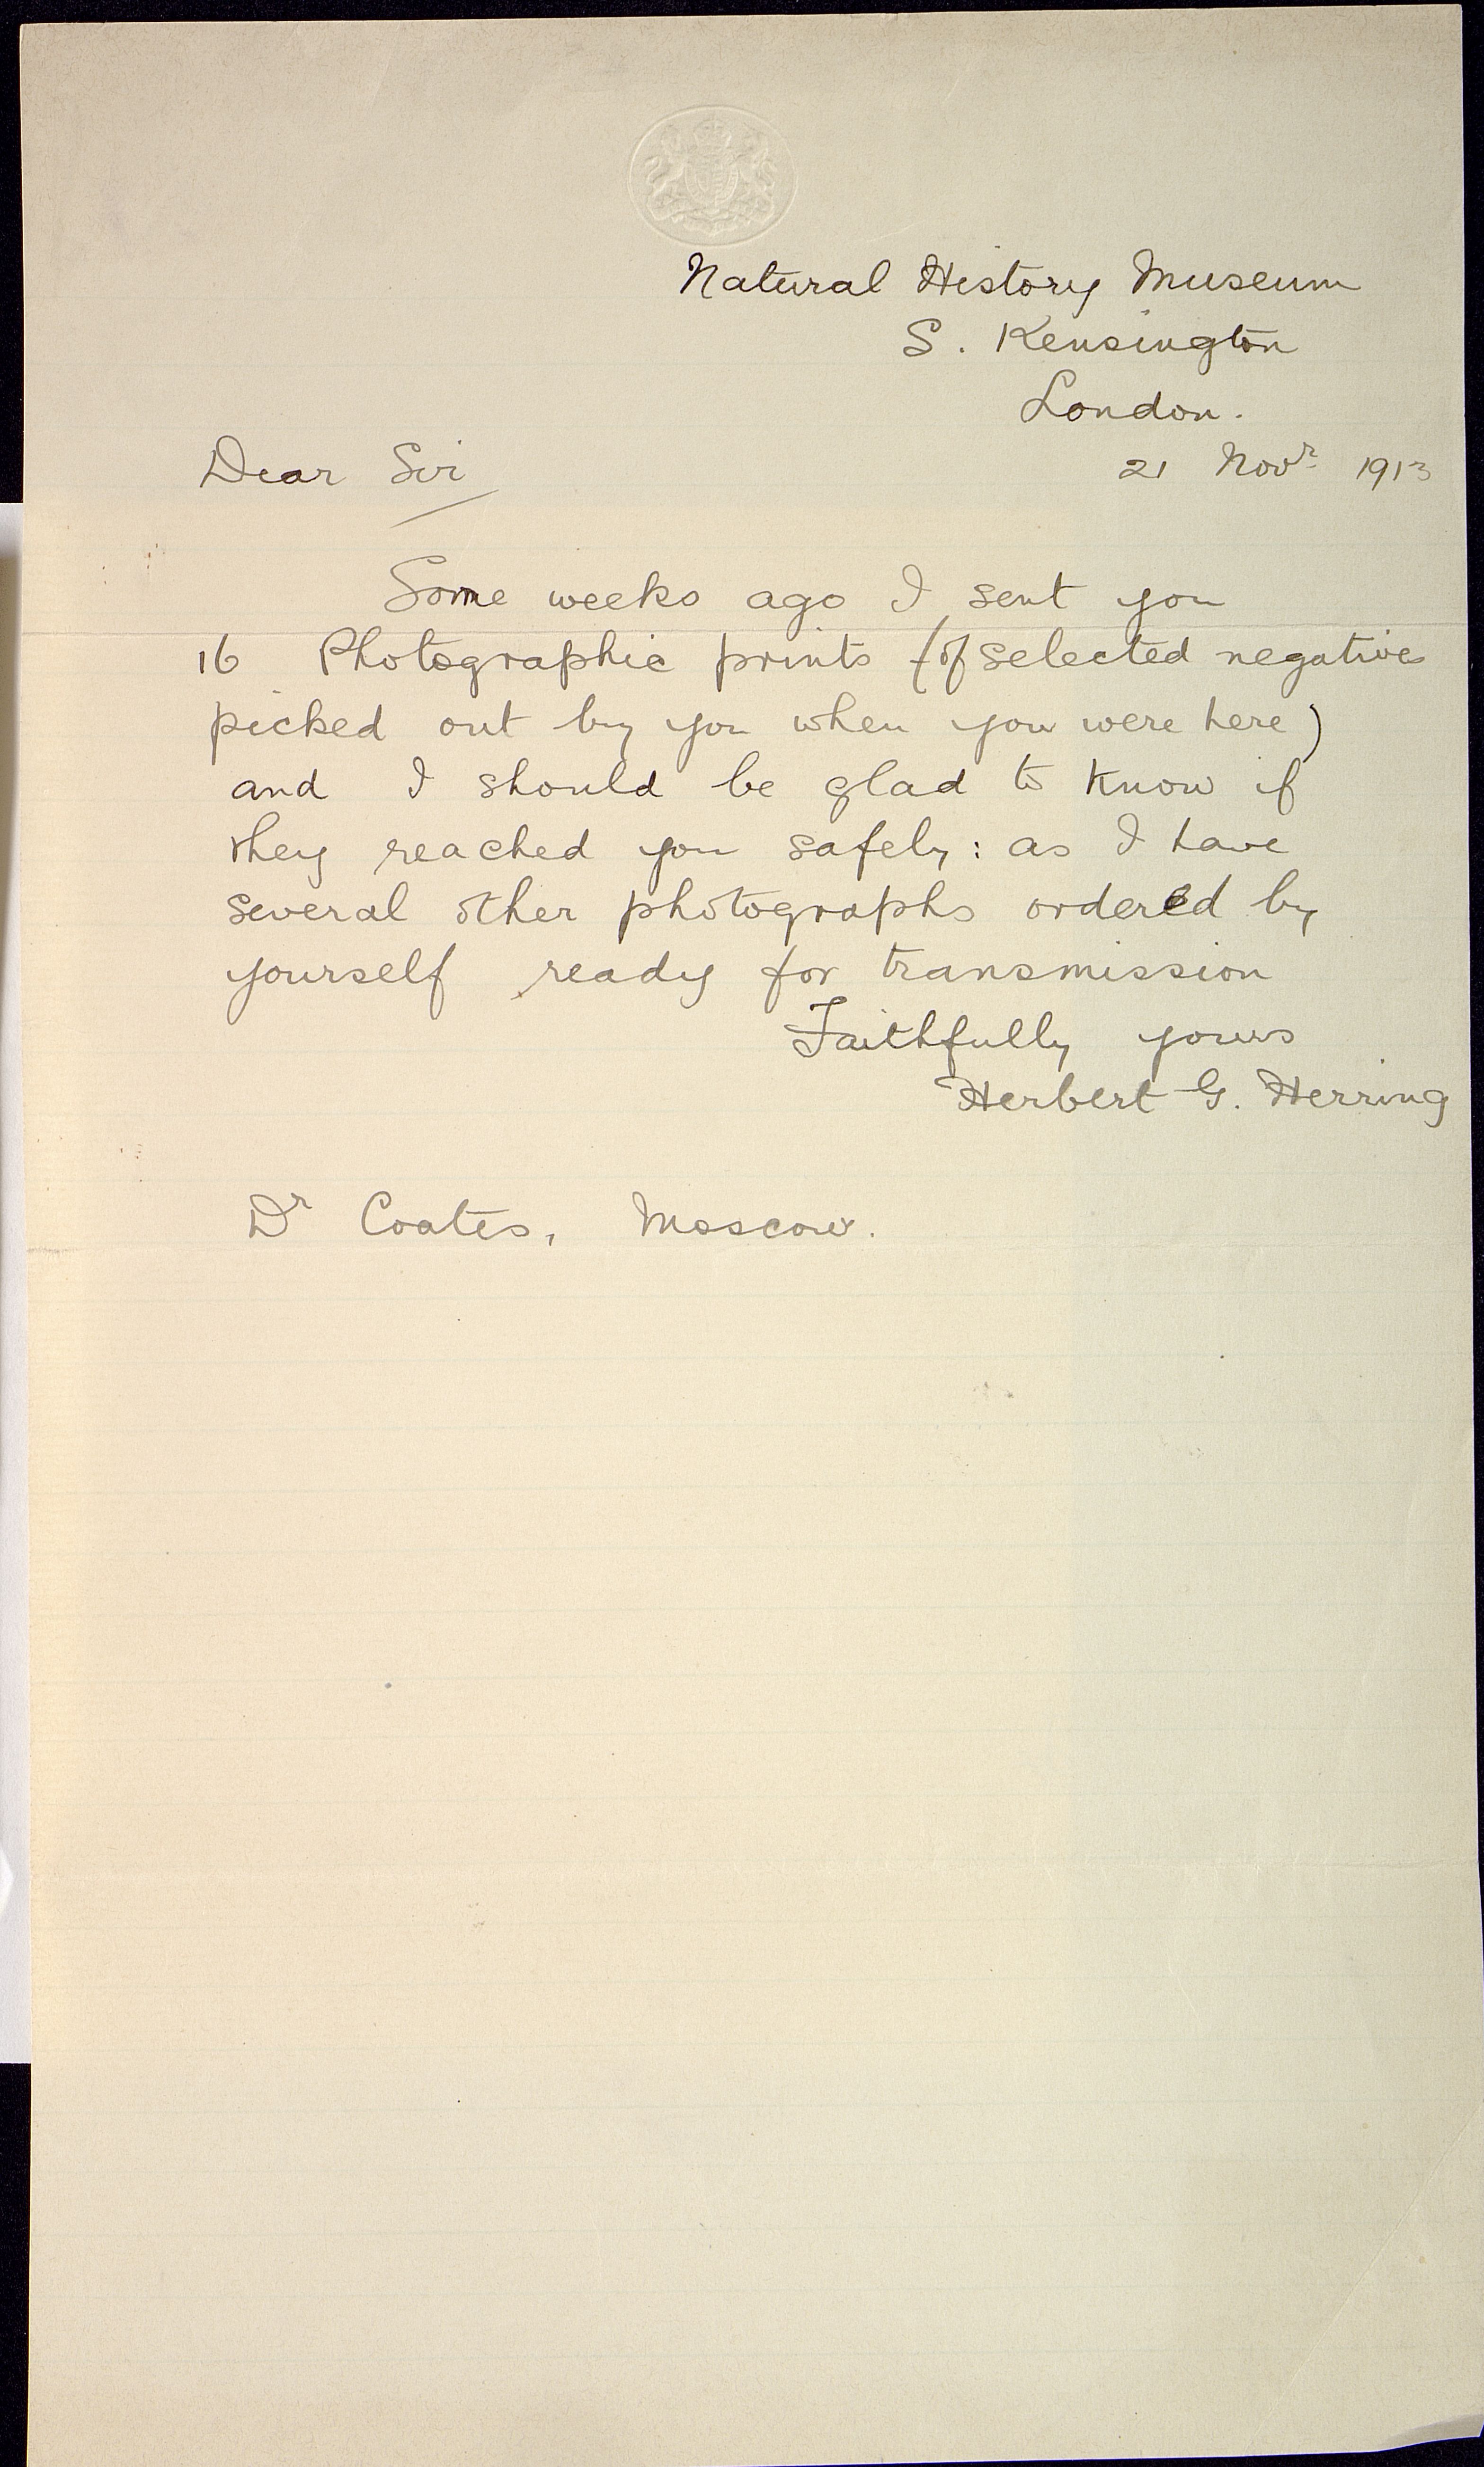 Natural History Museum
S. Kensington
London.
21 Novr 1913
Dear Sir
Some weeks ago I sent you
16 Photographic prints (of selected negatives
picked out by you when you were here)
and I should be glad to know if
they reached you safely: as I have
several other photographs ordered by
yourself ready for transmission
Faithfully yours
Herbert G. Herring
Dr Coates, Moscow.